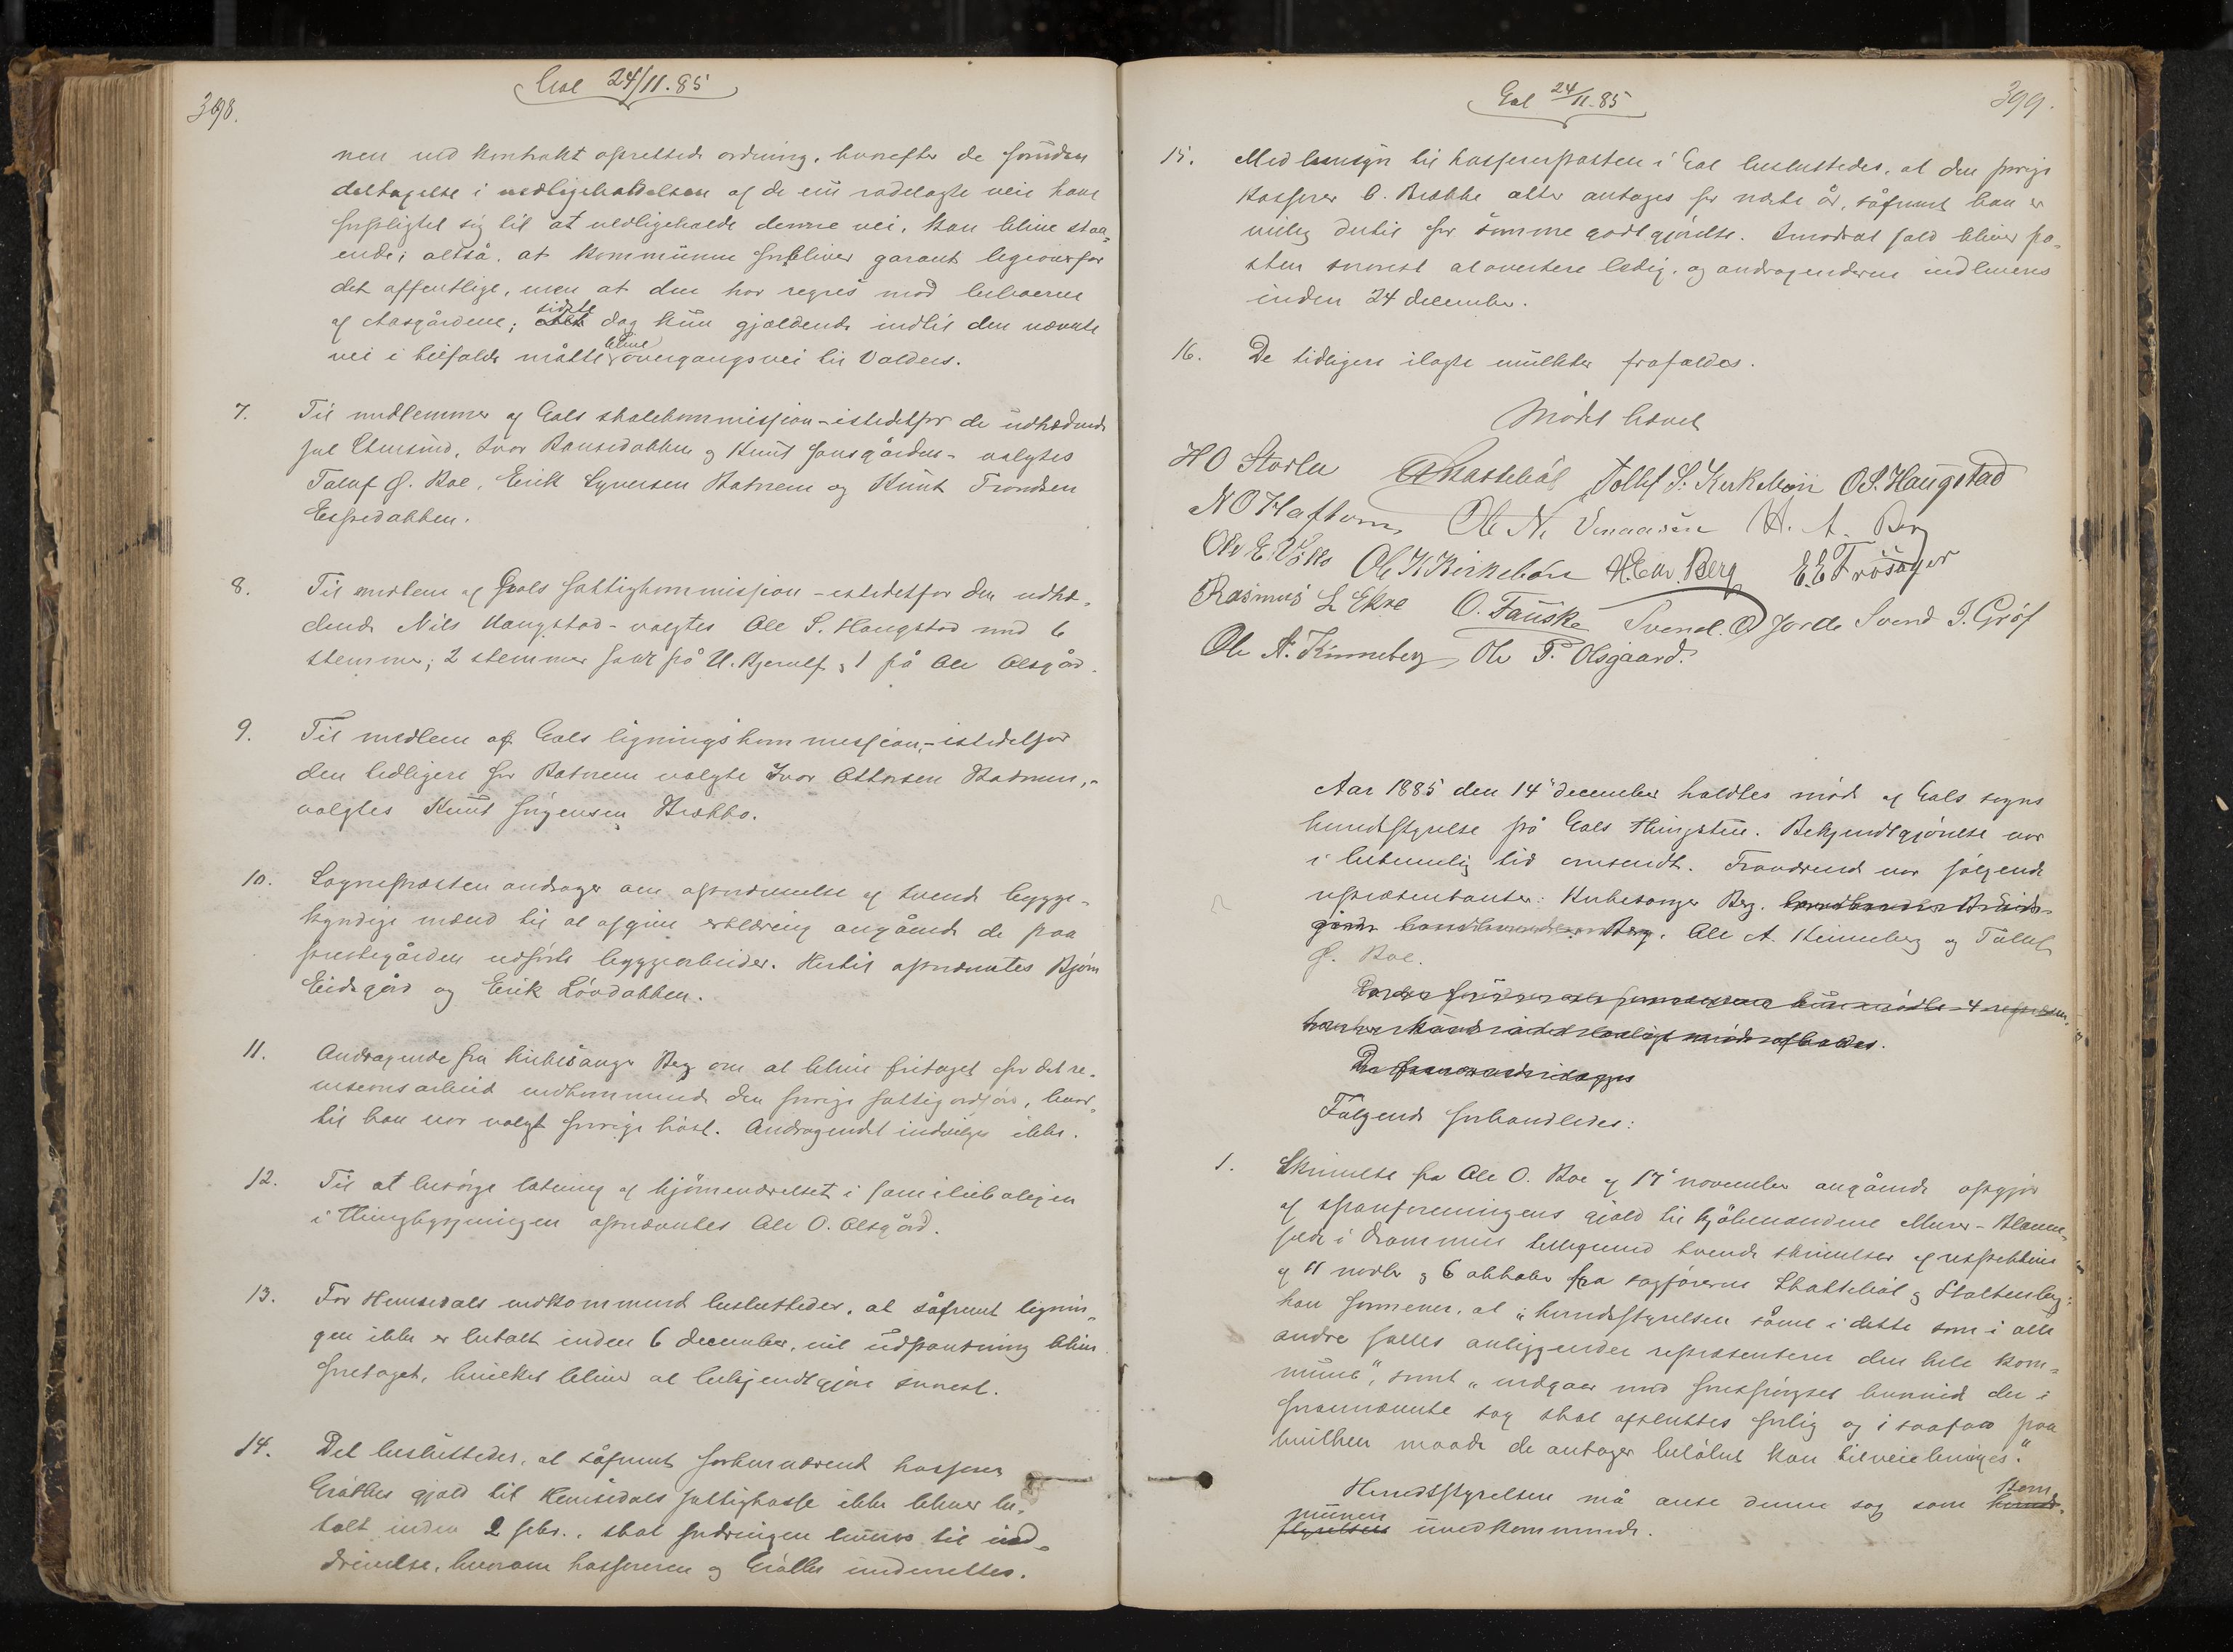 398.
Gol 24/11.85
nen ved kontrakt oprettede ordning, hvorefter de foruden
deltagelse i vedligeholdelsen af de nu rodelagte veie have
forpligtet sig til at vedligeholde denne vei, kan blive staa-
ende; altså, at kommunen forbliver garant ligeoverfor
det offentlige, men at den har regres mod beboerne
af Aasgårdene; sidste dog kun gjældende indtil den nævnte
vei i tilfælde måtte blive overgangsvei til Valders.
7. Til medlemmer af Gols skolekommission - istedetfor de udtrædende
Ivar og Knut - valgtes
Toluf G. Boe, Erik Syversen Batnem og Knut Trondsen
Espedokken.
8. Til medlem af Gols fattigkommission - istedetfor den udtræ-
dende Nils Haugstad - valgtes Ole S. Haugstad med 6
stemmer; 2 stemmer faldt på U. Bjerulf og 1 på Ole Olsgård.
9. Til medlem af Gols ligningskommission, - istedetfor
den tidligere for Batnem valgte Ivar Ottosen,-
valgtes Knut Jørgensen Brekko.
10. Sognepræsten andrager om opnævnelse af tvende bygge-
kyndige mænd til at afgive erklæring angående de paa
prestegården udførte byggearbeider. Hertil opnævntes Bjørn
Eidsgård og Erik Løvdokken.
11. Andragende fra kirkesanger Berg om at blive fritaget for det re-
visionsarbeid vedkommende den forrige fattigordfører, hvor-
til han var valgt forrige høst. Andragendet indvilges ikke.
12. Til at besørge ladning af hjørneværelset i familieboligen
i thingbygningen opnævntes Ole O. Olsgård.
13. For Hemsedals vedkommende besluttedes, at såfremt lignin-
gen ikke er betalt inden 6 december, vil udpantning blive
foretaget, hvilket bliver at bekjendtgjøre snarest.
14. Det besluttedes, at såfremt forhenværende kasserer
Gråbbes gjæld til Hemsedals fattigkasse ikke bliver be-
talt inden 2 febr., skal fordringen leveres til ind-
drivelse, hvorom kassereren og Gråbbe underrettes.
Gol 24/11.85
399.
15. Med hensyn til kassererposten i Gol besluttedes, at den forrige
kasserer O. Brekke atter antages for næste år, såfremt han er
villig dertil for samme godtgjørelse. I modsat fald bliver po-
sten snarest at avertere ledig, og andragenderne indleveres
inden 24 december.
16. De tidligere ilagte mulkter frafaldes.
Mødet hævet
HO Storla Skattebøl Tollef S. Kirkebøn O.S. Haugstad
N O Haftorn Ole N. H. A. Berg
Ole E. Ole K Kirkebøn H. Ew. Berg E.E Trøsåger
Rasmus L Ekre O. Fauske Svend. O Jorde Svend T. Grøf
Ole A. Kinneberg Ole P. Olsgaard.
Aar 1885 den 14de december holdtes møde af Gols sogns
herredsstyrelse på Gols thingstue. Bekjendtgjørelse var
i betimelig tid omsendt. Fraværende var følgende
repræsentanter: Kirkesanger Berg,
Ole A. Kinneberg og Toluf
G. Boe.
Følgende forhandledes:
1. Skrivelse fra Ole O. Boe af 17de november angående opgjør
af spareforeningens gjæld til kjøbmændene Meier - Blomme-
i Drammen vedlagt tvende skrivelser af respektive
af 11 novbr og 6 oktober fra sagførerne Skattebøl og Stoltenberg:
han formener, at „herredsstyrelsen såvel i dette som i alle
andre fælles anliggender repræsenterer den hele kom-
mune", samt „vedgaar med hvorvidt den i
forannævnte sag skal afsluttes forlig og i saafald paa
hvilken maade de antager beløbet kan tilveiebringes."
Herredsstyrelsen må anse denne sag som kom-
munen uvedkommende.